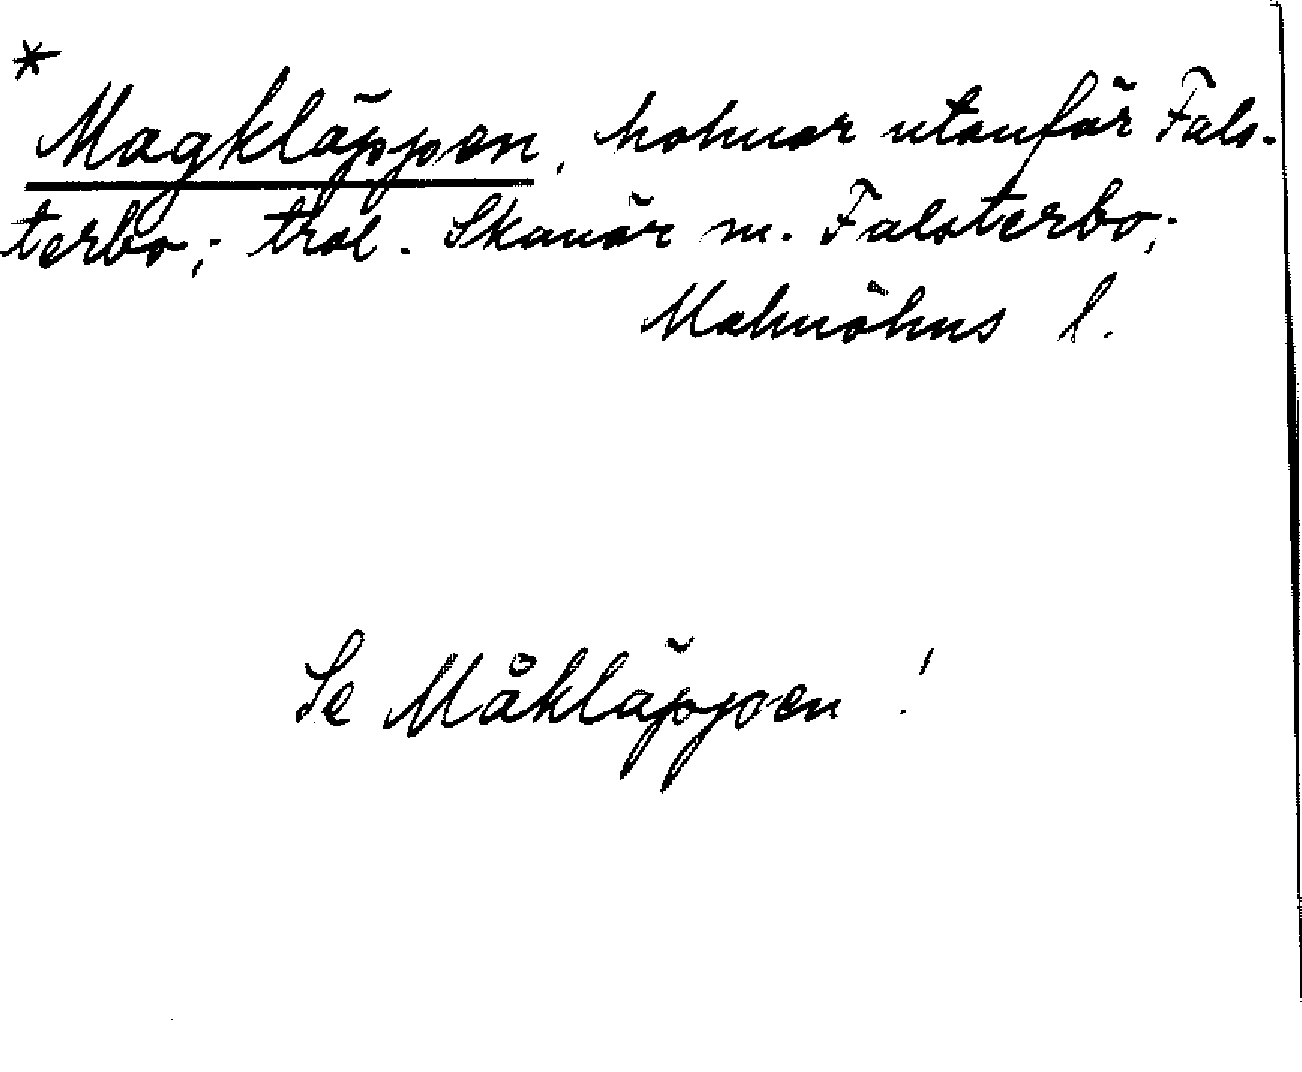 *
Magkläppen, holmar utanför Fals-
terbo; trol. Skanör m. Falsterbo;
Malmöhus l.
Se Måkläppen !